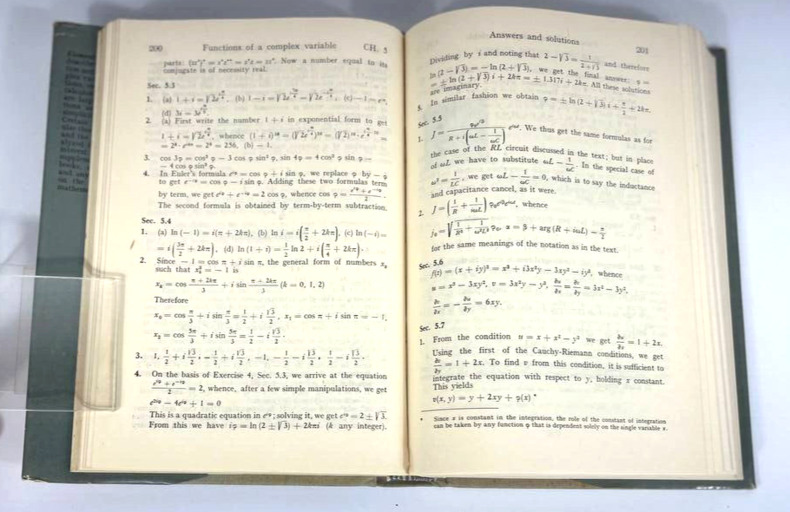 200 Functions of a complex variable CH. 5
parts: (zz*)* = z*z** = z*z = zz*. Now a number equal to its
conjugate is of necessity real.
Sec. 5.3
1. (a) 1 + i = √2e^{iπ/4}, (b) 1 − i = √2e^{
(d) 3i = 3e^{iπ/2}.
2. (a) First write the number 1 + i in exponential form to get
1 + i = √2e^{iπ/4}, whence (1 + i)^{16} = (√2e^{iπ/4})^{16} = (√2)^{16}
= 2⁸ = 256, (b) −1.
3. cos 3φ = cos³ φ − 3 cos φ sin² φ, sin 4φ = 4 cos³ φ sin φ −
− 4 cos φ sin³ φ.
4. In Euler's formula e^{iφ} = cos φ + i sin φ, we replace φ by −φ
to get e^{−iφ} = cos φ − i sin φ. Adding these two formulas term
by term, we get e^{iφ} + e^{−iφ} = 2 cos φ, whence cos φ = (e^{iφ} + e^{−iφ})/2.
The second formula is obtained by term-by-term subtraction.
Sec. 5.4
1. (a) ln (−1) = i(π + 2kπ), (b) ln i = i(π/2 + 2kπ), (c) ln (−i) =
= i(3π/2 + 2kπ), (d) ln (1 + i) = 1/2 ln 2 + i(π/4 + 2kπ).
2. Since −1 = cos π + i sin π, the general form of numbers xₖ
such that xₖ³ = −1 is
xₖ = cos (π + 2kπ)/3 + i sin (π + 2kπ)/3 (k = 0, 1, 2)
Therefore
x₀ = cos π/3 + i sin π/3 = 1/2 + i √3/2, x₁ = cos π + i sin π = −1,
x₂ = cos 5π/3 + i sin 5π/3 = 1/2 − i √3/2.
3. 1, 1/2 + i √3/2, −1/2 + i √3/2, −1, −1/2 − i √3/2, 1/2 − i √3/2.
4. On the basis of Exercise 4, Sec. 5.3, we arrive at the equation
(e^{iφ} + e^{−iφ})/2 = 2, whence, after a few simple manipulations, we get
e^{2iφ} − 4e^{iφ} + 1 = 0
This is a quadratic equation in e^{iφ}; solving it, we get e^{iφ} = 2 ± √3.
From this we have iφ = ln (2 ± √3) + 2kπi (k any integer).
Answers and solutions 201
Dividing by i and noting that 2 − √3 = 1/(2 + √3) and therefore
ln (2 − √3) = −ln (2 + √3), we get the final answer: φ =
= ± ln (2 + √3) i + 2kπ = ± 1.317i + 2kπ. All these solutions
are imaginary.
5. In similar fashion we obtain φ = ± ln (2 + √3) i + π/2 + 2kπ.
Sec. 5.5
1. J = φ₀e^{iα}/(R + i(ωL − 1/ωC)) e^{iωt}. We thus get the same formulas as for
the case of the RL circuit discussed in the text; but in place
of ωL we have to substitute ωL − 1/ωC. In the special case of
ω² = 1/LC, we get ωL − 1/ωC = 0, which is to say the inductance
and capacitance cancel, as it were.
2. J = (1/R + 1/iωL) φ₀e^{iβ}e^{iωt}, whence
j₀ = √(1/R² + 1/ω²L²) φ₀, α = β + arg (R + iωL) − π/2
for the same meanings of the notation as in the text.
Sec. 5.6
f(z) = (x + iy)³ = x³ + i3x²y − 3xy² − iy³, whence
u = x³ − 3xy², v = 3x²y − y³, ∂u/∂x = ∂v/∂y = 3x² − 3y²,
∂v/∂x = −∂u/∂y = 6xy.
Sec. 5.7
1. From the condition u = x + x² − y² we get ∂u/∂x = 1 + 2x.
Using the first of the Cauchy-Riemann conditions, we get
∂v/∂y = 1 + 2x. To find v from this condition, it is sufficient to
integrate the equation with respect to y, holding x constant.
This yields
v(x, y) = y + 2xy + φ(x) *
* Since x is constant in the integration, the role of the constant of integration
can be taken by any function φ that is dependent solely on the single variable x.